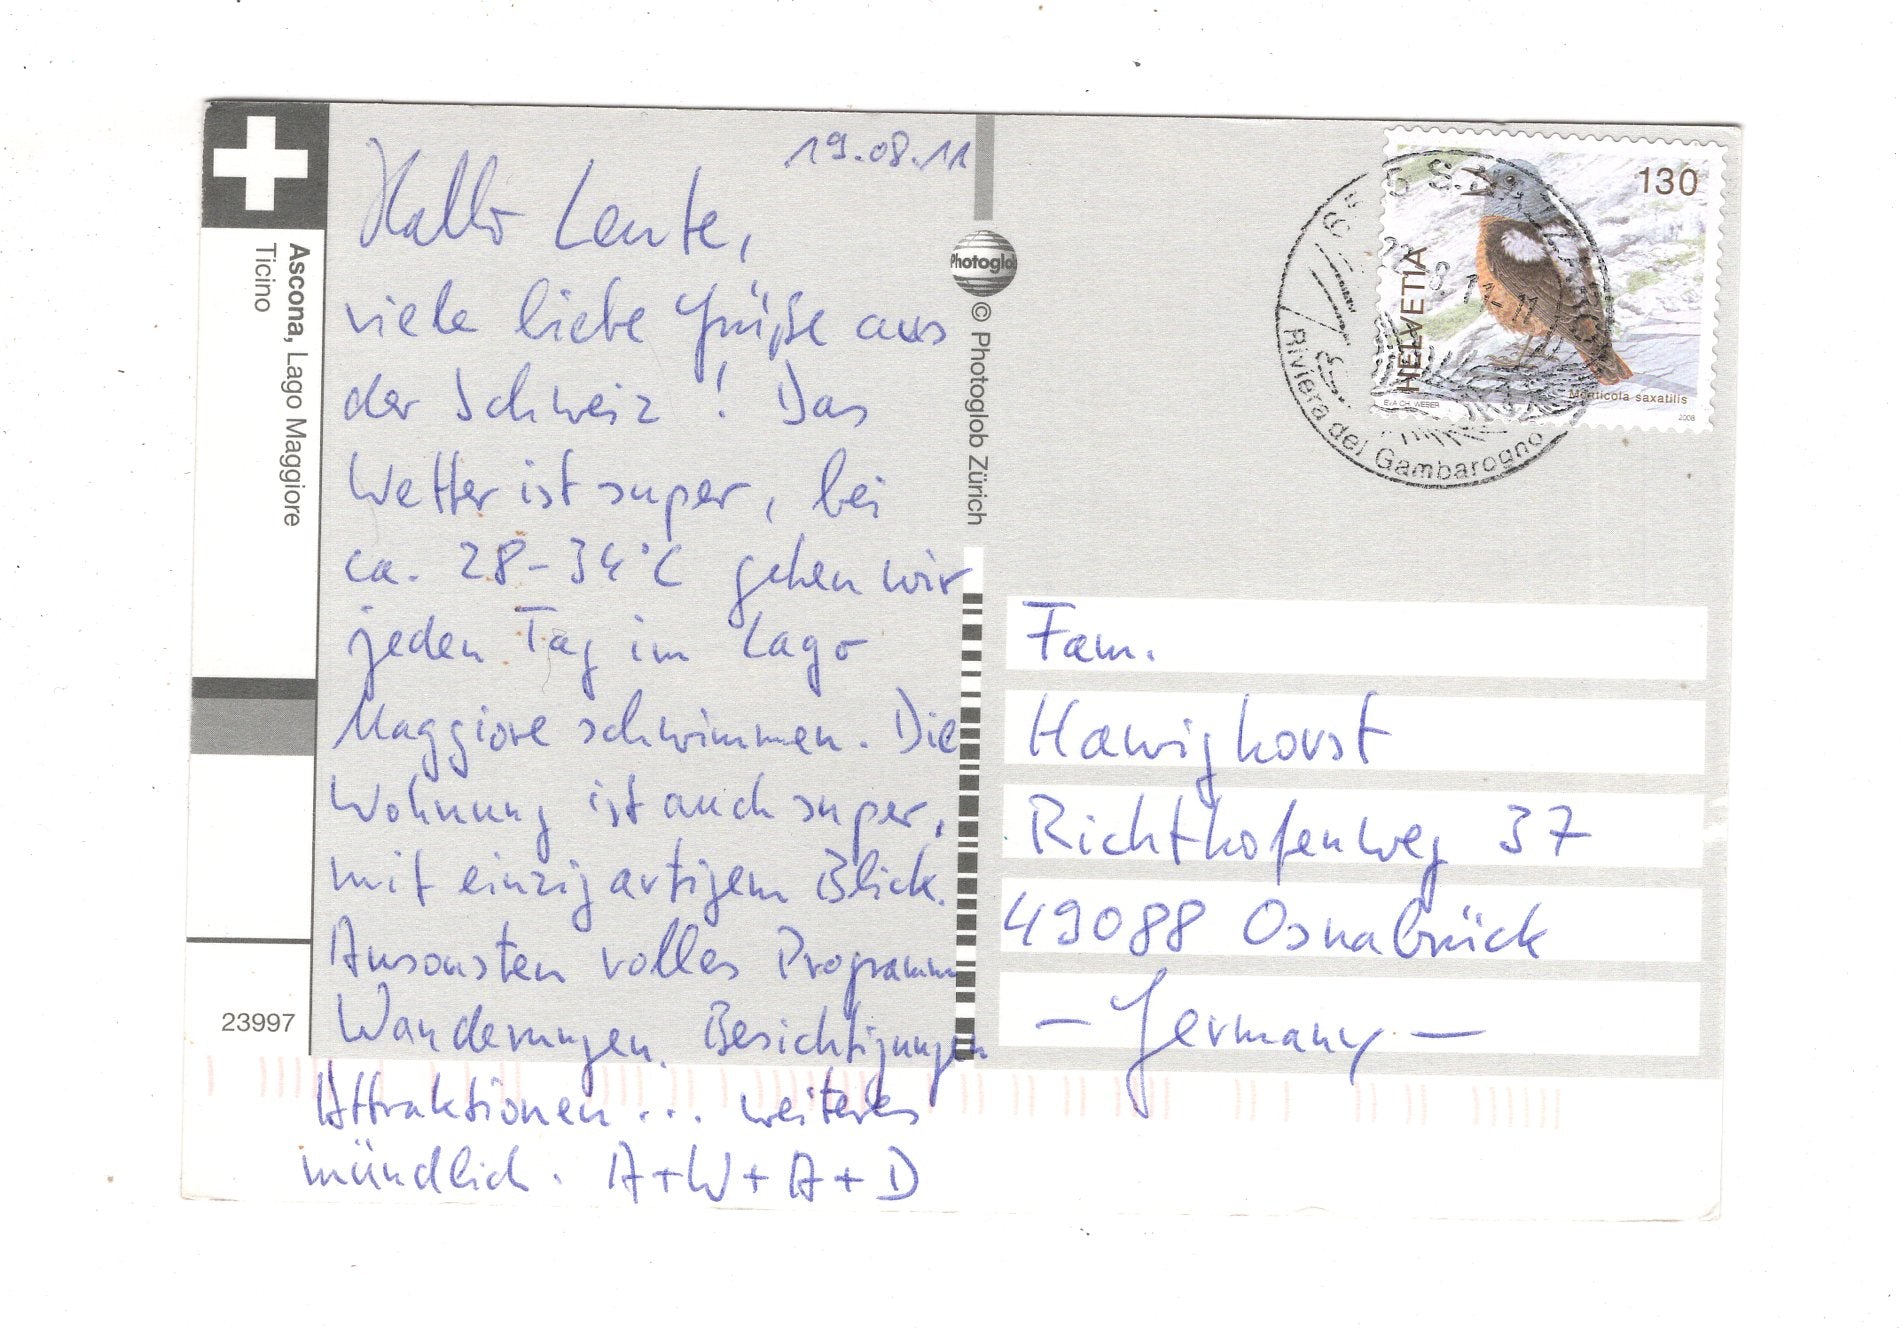 Ascona, Lago Maggiore
Ticino
23997
19.08.11
Hallo Leute,
viele liebe Grüße aus
der Schweiz! Das
Wetter ist super, bei
ca. 28-34°C gehen wir
jeden Tag im Lago
Maggiore schwimmen. Die
Wohnung ist auch super,
mit einzigartigem Blick.
Ansonsten volles Programm
Wanderungen, Besichtigungen
Attraktionen... weiteres
mündlich. A+W+A+D
Photoglob
© Photoglob Zürich
130
HELVETIA
Monticola saxatilis
EVA CH. WEBER
2008
Riviera del Gambarogno
Fam.
Hawighorst
Richthofenweg 37
49088 Osnabrück
- Germany -